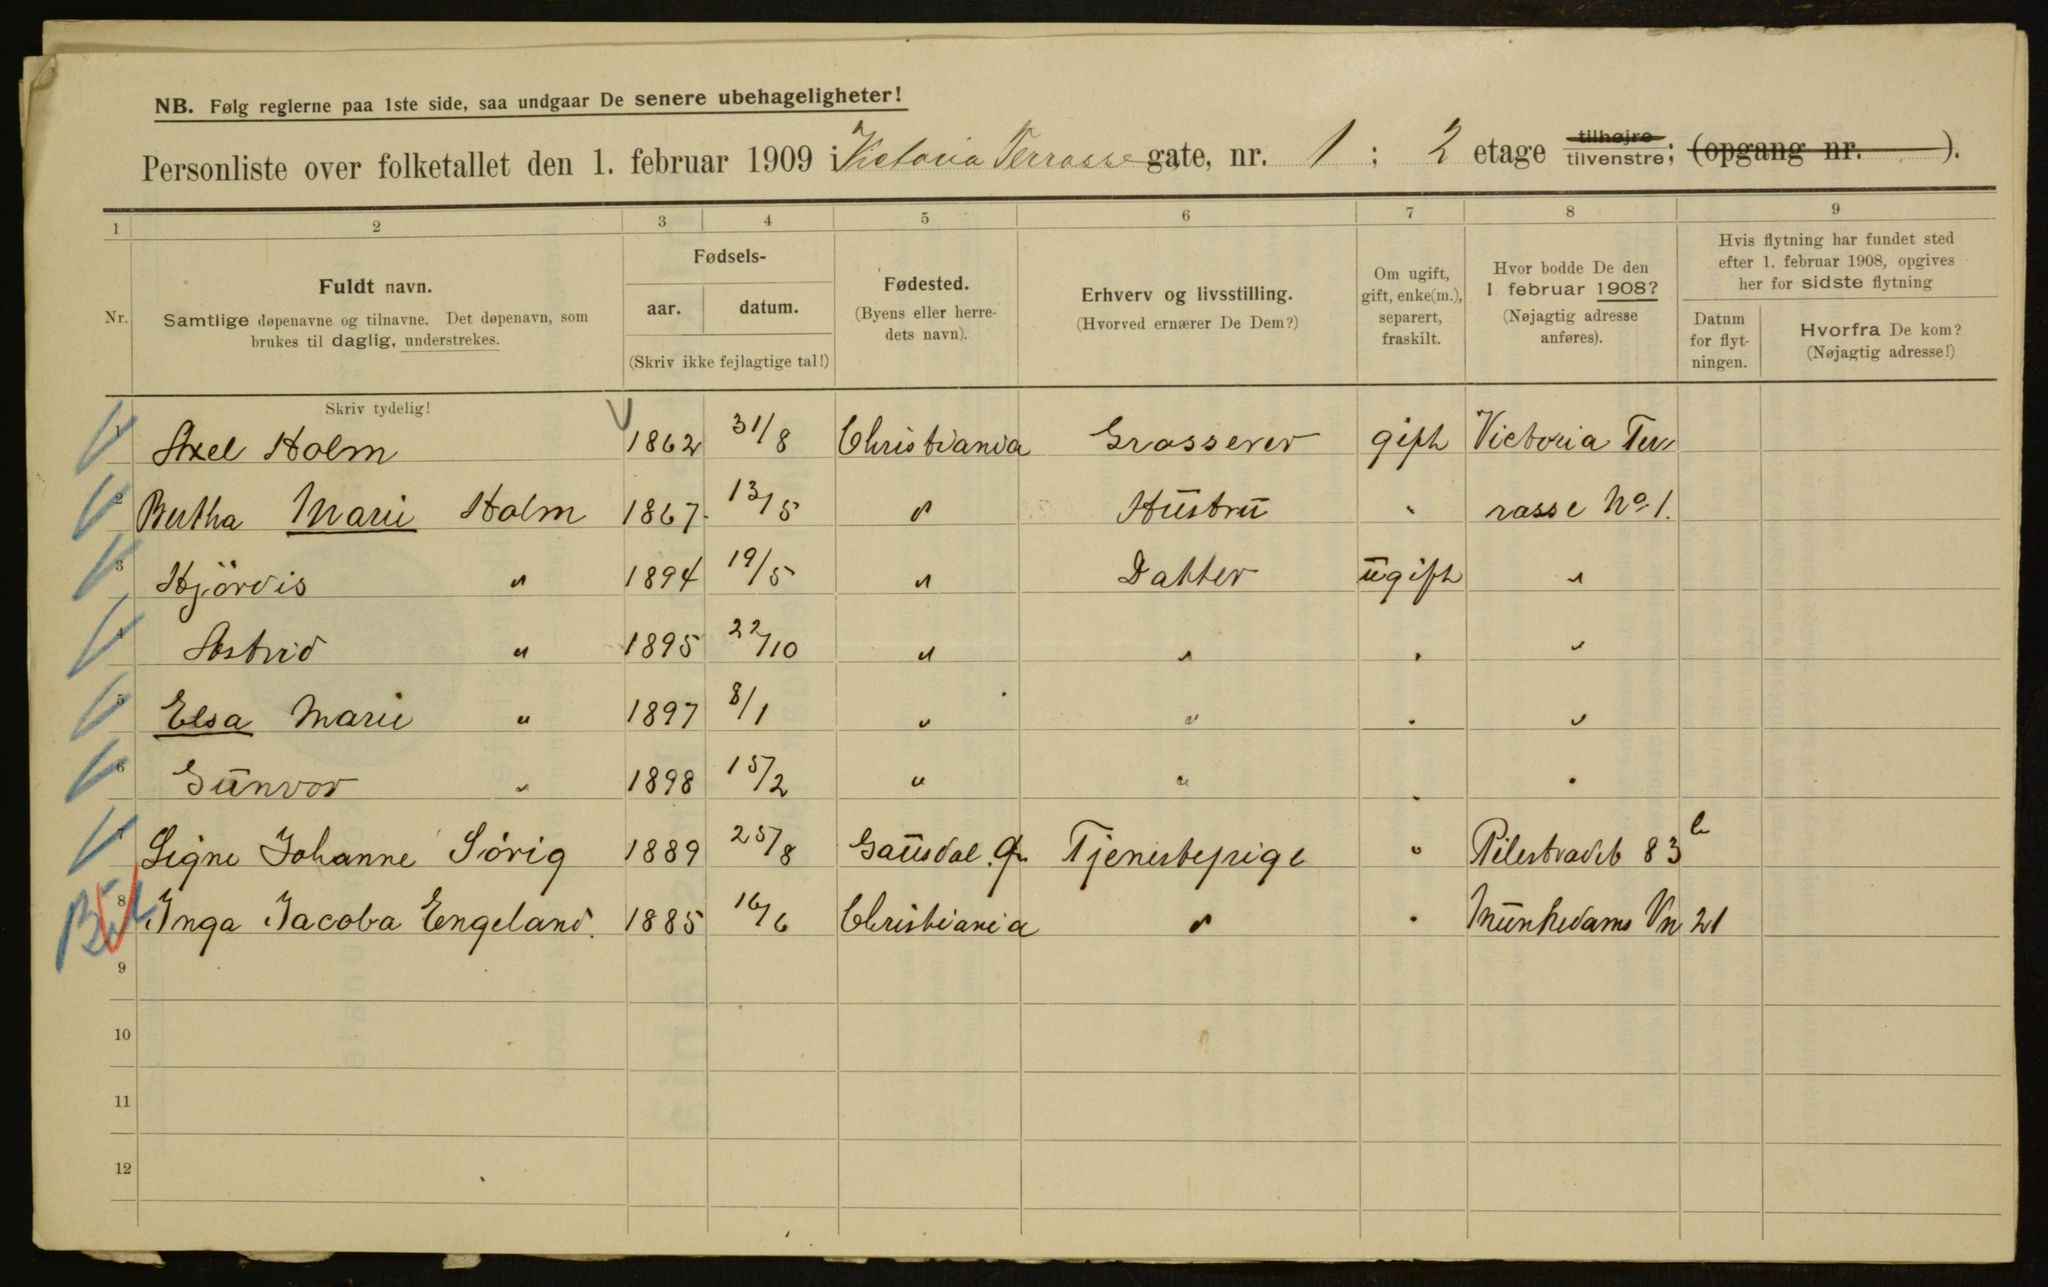 NB. Følg reglerne paa 1ste side, saa undgaar De senere ubehageligheter!
Personliste over folketallet den 1. februar 1909 i Victoria Terrasse gate, nr. 1 ; 2 etage tilhøjre tilvenstre; (opgang nr. ).
1 2 3 4 5 6 7 8 9
Nr.
Fuldt navn.
Samtlige døpenavne og tilnavne. Det døpenavn, som
brukes til daglig, understrekes.
Fødsels-
aar. datum.
(Skriv ikke fejlagtige tal!)
Fødested.
(Byens eller herre-
dets navn).
Erhverv og livsstilling.
(Hvorved ernærer De Dem?)
Om ugift,
gift, enke(m.),
separert,
fraskilt.
Hvor bodde De den
1 februar 1908?
(Nøjagtig adresse
anføres).
Hvis flytning har fundet sted
efter 1. februar 1908, opgives
her for sidste flytning
Datum
for flyt-
ningen.
Hvorfra De kom?
(Nøjagtig adresse!)
Skriv tydelig!
1 Axel Holm 1862 31/8 Christiania Grosserer gift Victoria Ter-
2 Bertha Marie Holm 1867 13/5 " Hustru " rasse No. 1.
3 Hjördis " 1894 19/5 " Datter ugift "
4 Astrid " 1895 22/10 " " " "
5 Elsa Marie " 1897 8/1 " " " "
6 Gunvor " 1898 15/2 " " " "
7 Signe Johanne Sörig 1889 25/8 Gausdal. Tjenestepige " Pilestrædet 83 b
8 Inga Jacoba Engeland. 1885 16/6 Christiania " " Munkedams Vn 21
9
10
11
12